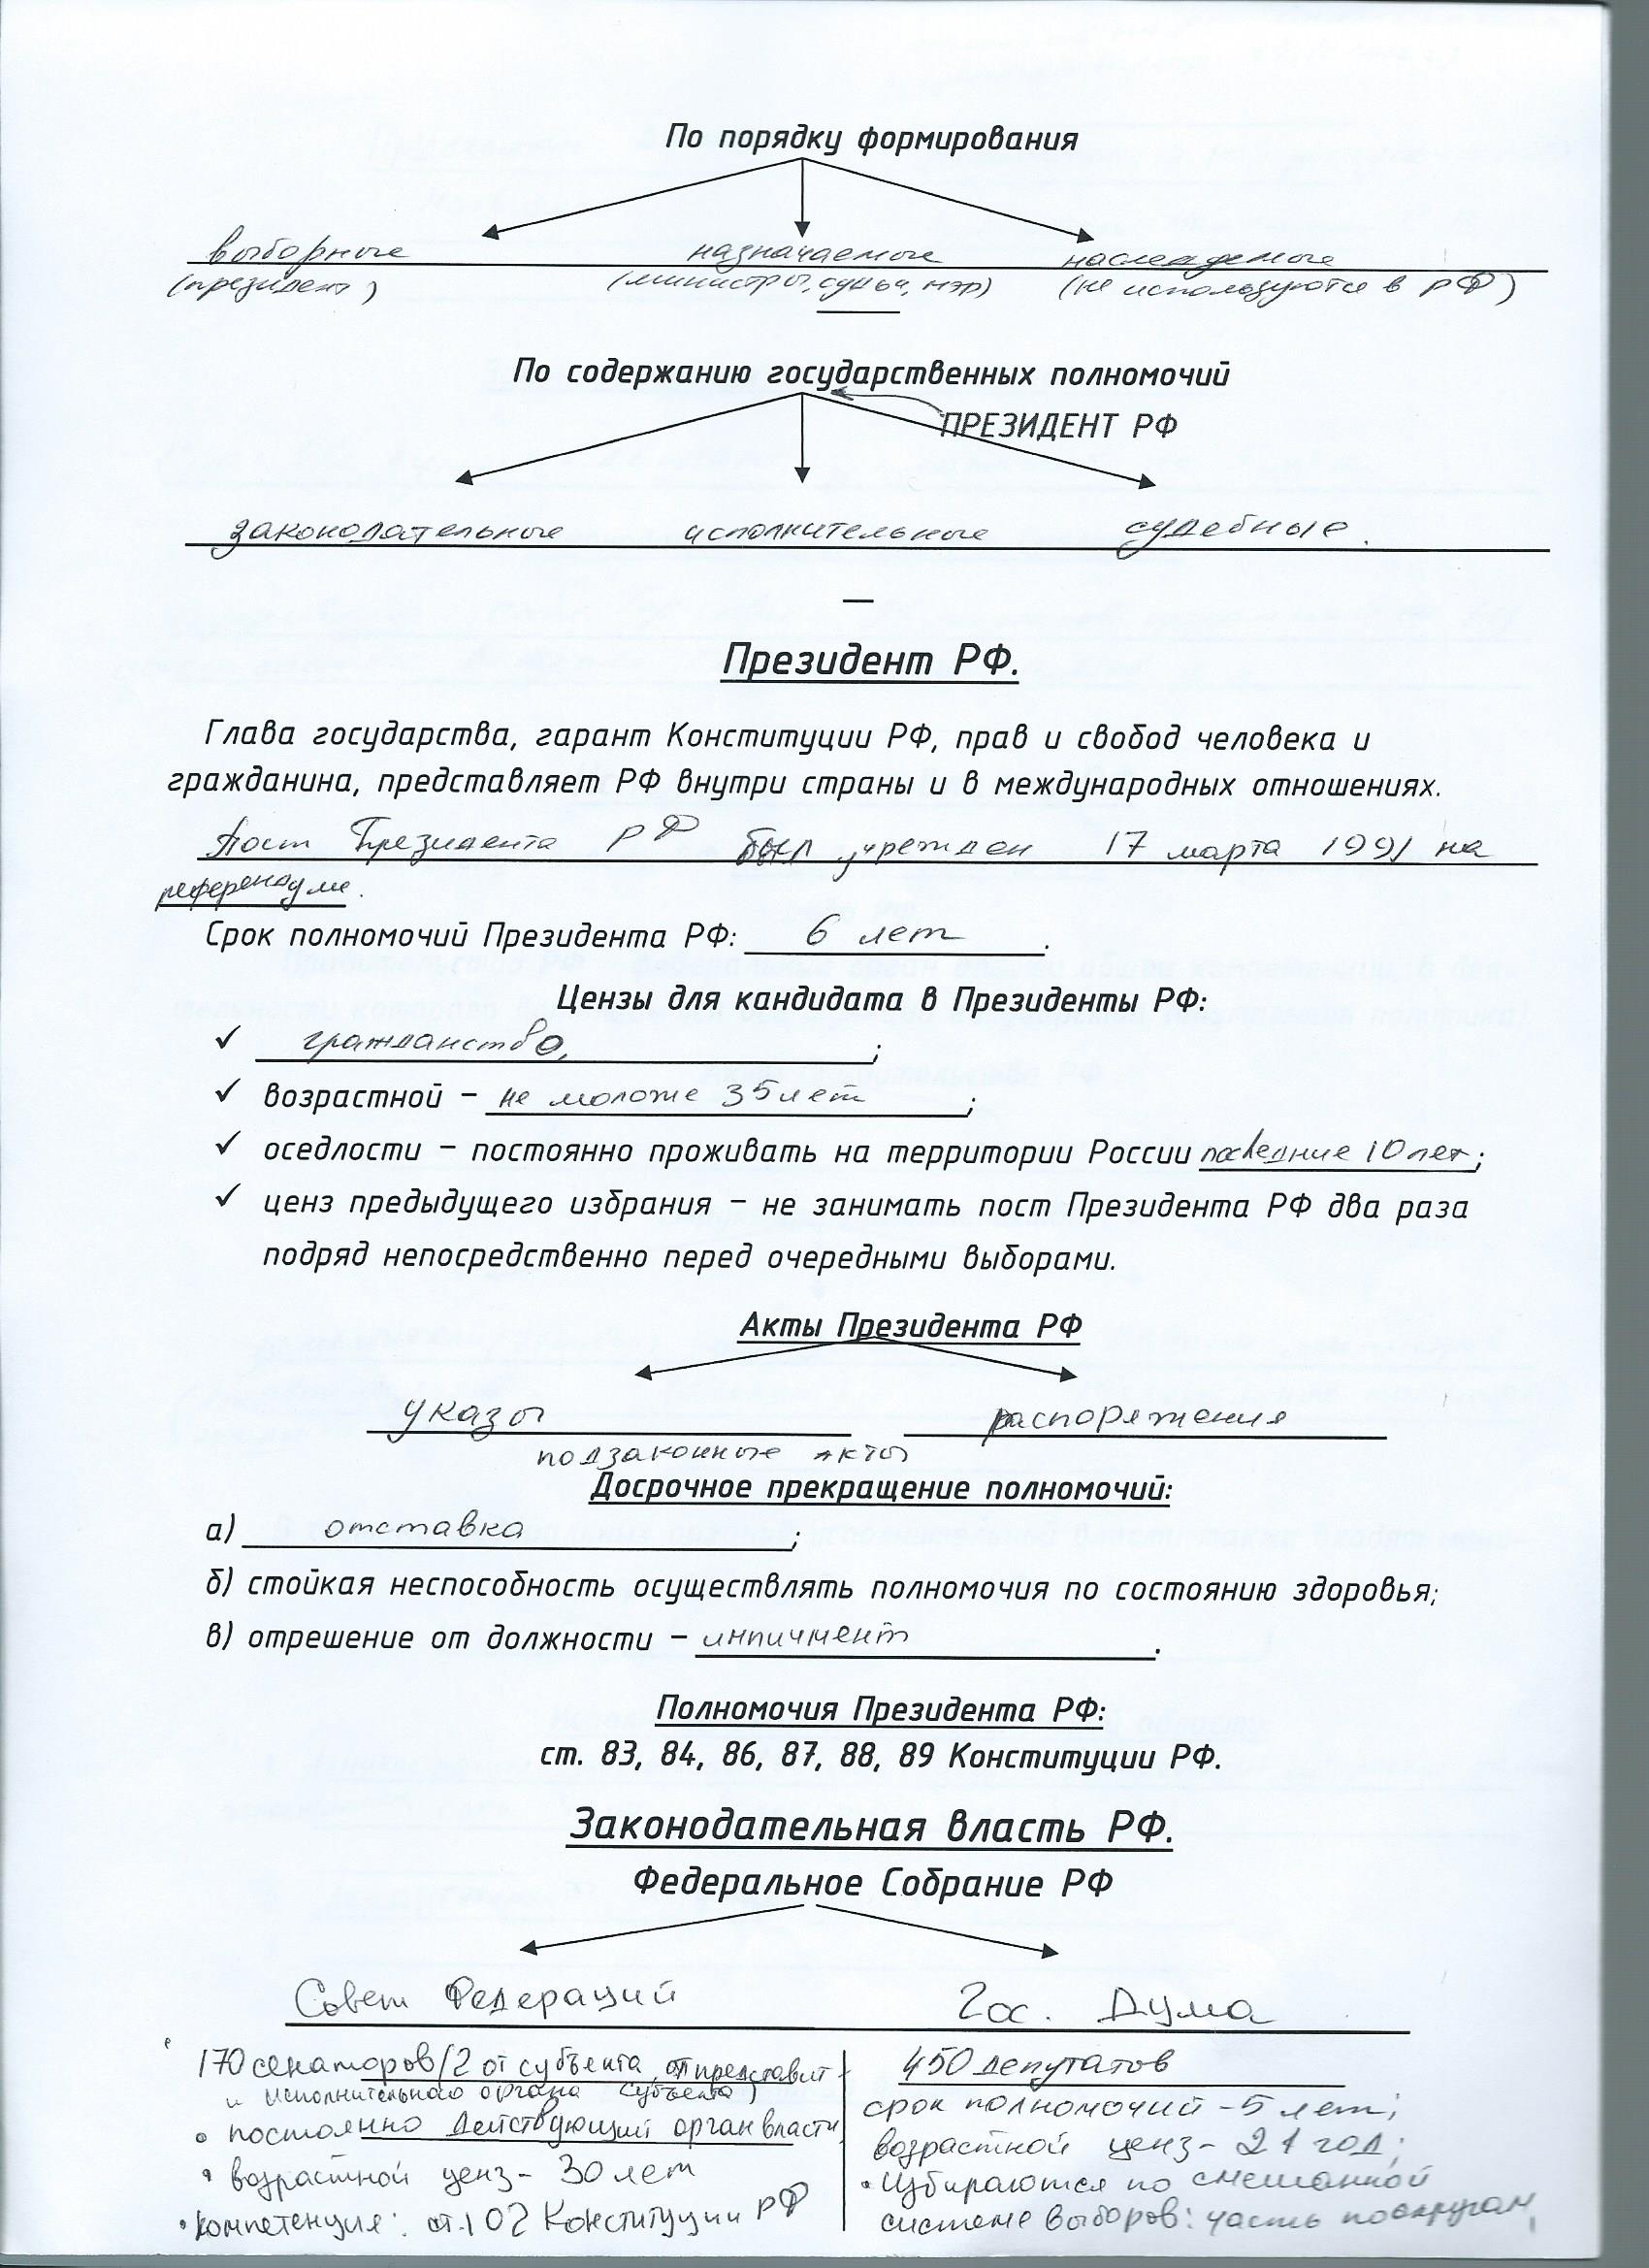 По порядку формирования
выборные назначаемые наследуемые
(президент) (министры, судьи, мэр) (не используются в РФ)
По содержанию государственных полномочий
ПРЕЗИДЕНТ РФ
законодательные исполнительные судебные.
Президент РФ.
Глава государства, гарант Конституции РФ, прав и свобод человека и
гражданина, представляет РФ внутри страны и в международных отношениях.
Пост Президента РФ был учрежден 17 марта 1991 на
референдуме.
Срок полномочий Президента РФ: 6 лет.
Цензы для кандидата в Президенты РФ:
✓ гражданство,;
✓ возрастной – не моложе 35 лет;
✓ оседлости – постоянно проживать на территории России последние 10 лет;
✓ ценз предыдущего избрания – не занимать пост Президента РФ два раза
подряд непосредственно перед очередными выборами.
Акты Президента РФ
указы распоряжения
подзаконные акты
Досрочное прекращение полномочий:
а) отставка;
б) стойкая неспособность осуществлять полномочия по состоянию здоровья;
в) отрешение от должности – импичмент.
Полномочия Президента РФ:
ст. 83, 84, 86, 87, 88, 89 Конституции РФ.
Законодательная власть РФ.
Федеральное Собрание РФ
Совет Федераций Гос. Дума
170 сенаторов (2 от субъекта, от представит
и исполнительного органа субъекта)
• постоянно действующий орган власти
• возрастной ценз - 30 лет
• компетенция: ст. 102 Конституции РФ
450 депутатов
срок полномочий - 5 лет;
возрастной ценз - 21 год;
• Избираются по смешанной
системе выборов: часть по округам,